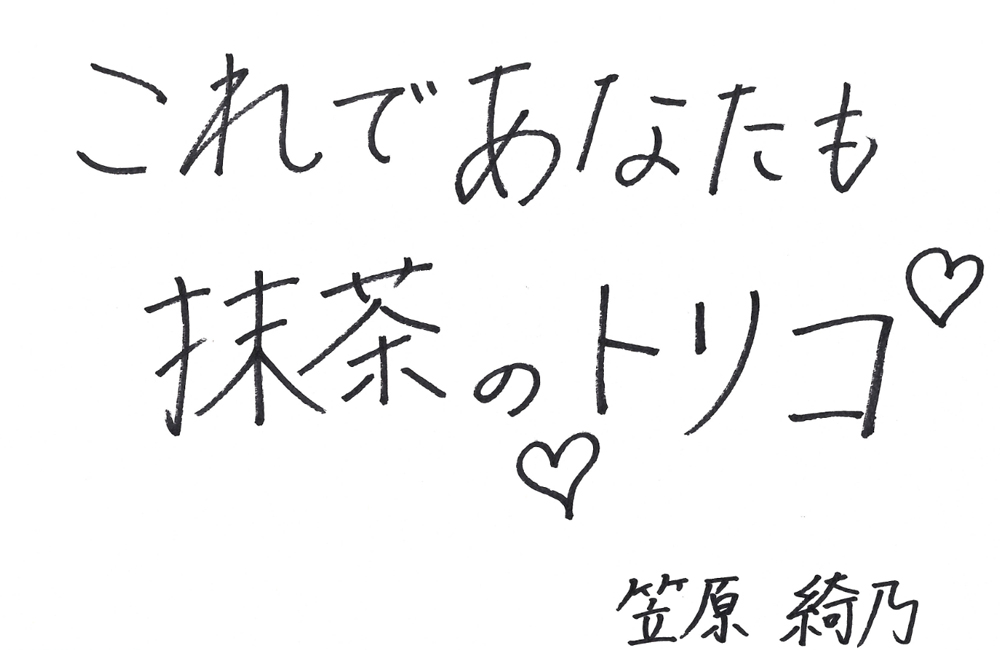 これであなたも
抹茶のトリコ♡
♡
笠原 綺乃